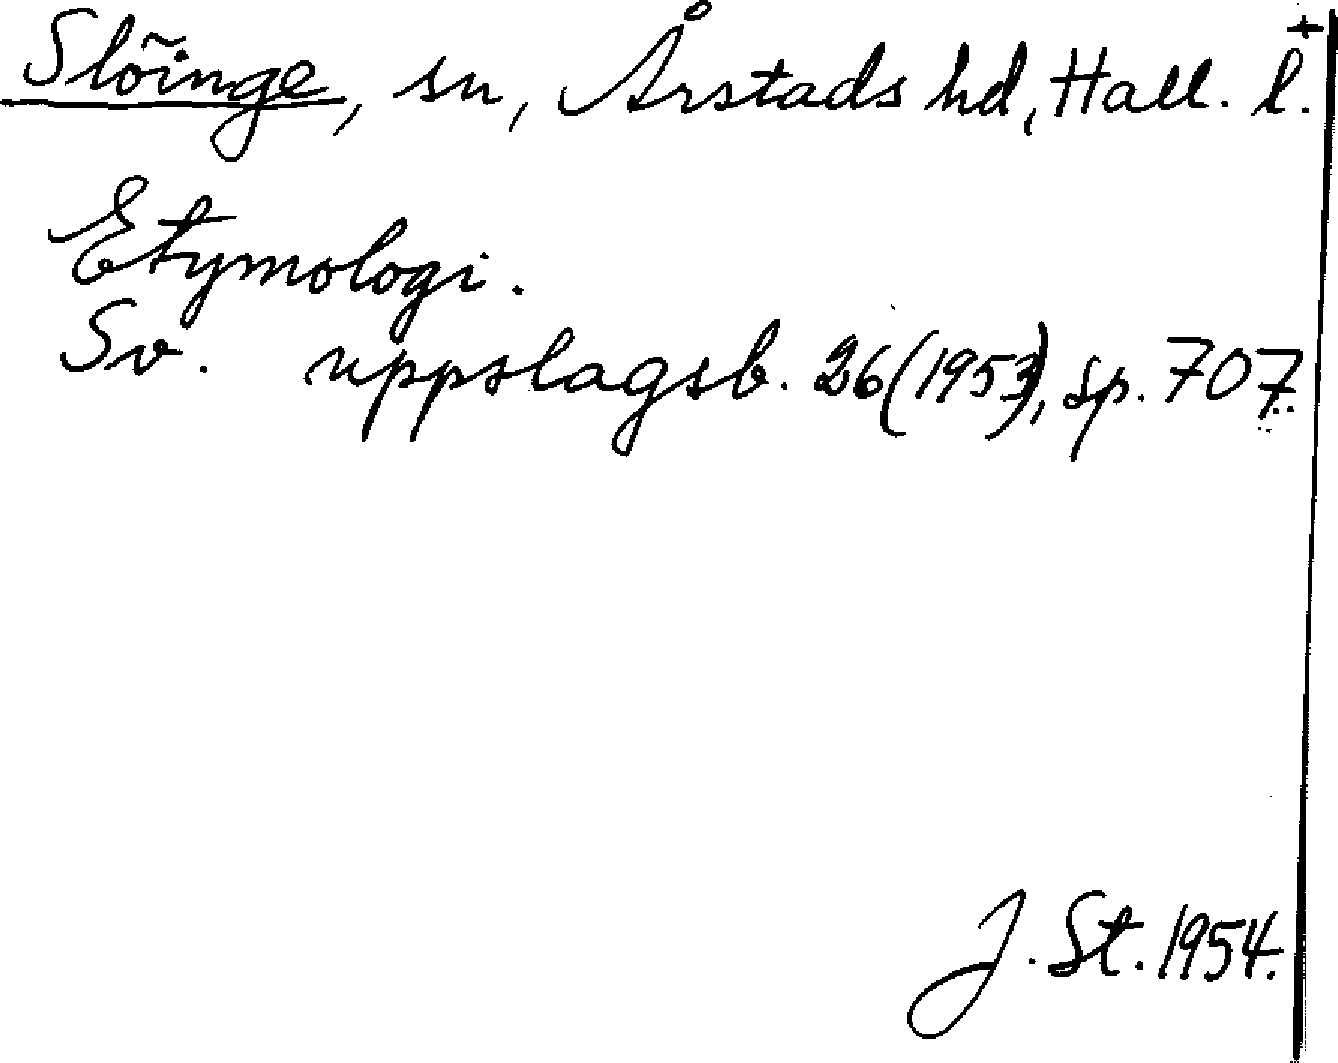 Slöinge, sn, Årstads hd, Hall. l. +
Etymologi.
Sv. uppslagsb. 26 (1953), sp. 707.
J. St. 1954.